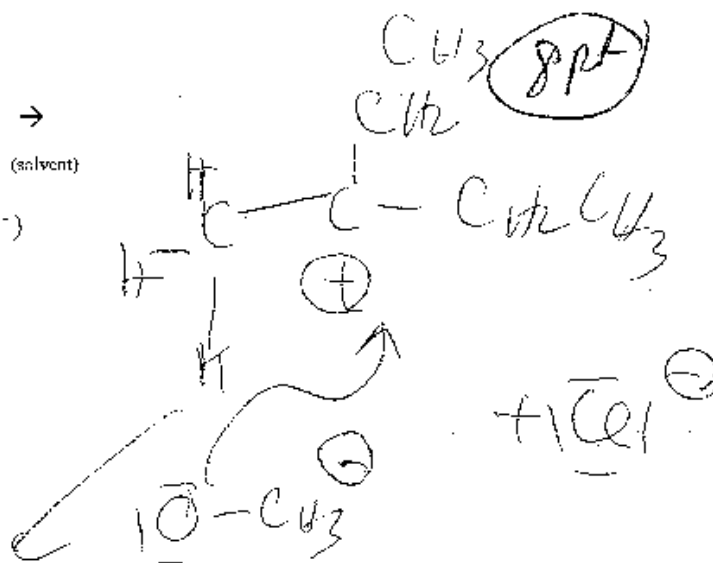 CH3 8pt
→ CH2
(solvent)
H
C — C — CH2CH3
H
⊕
H
+ |Cl| ⊖
⊖
|O — CH3